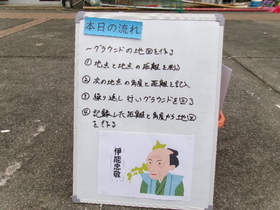 本日の流れ
〜グラウンドの地図を作る
①地点と地点の距離を測る
②次の地点の角度と距離を記入
③繰り返し行いグラウンドを回る
④記録した距離と角度から地図
を作る
伊能忠敬